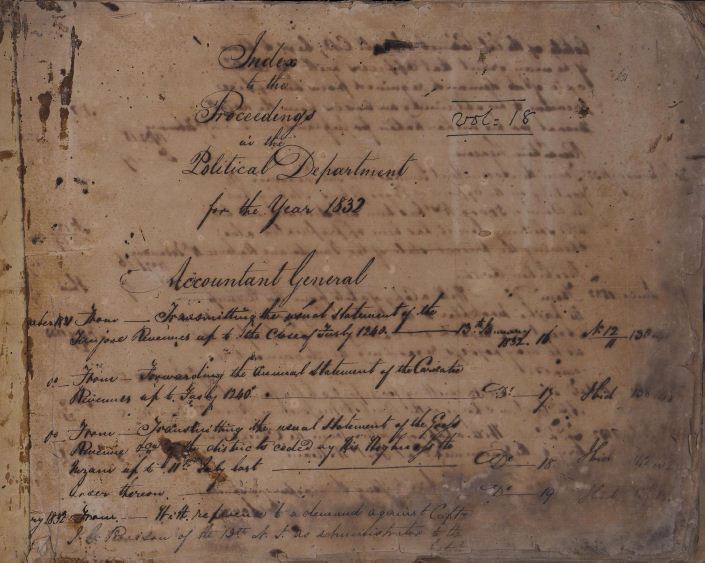 Index
to the
Proceedings
in the
Political Department
for the Year 1832
Vol: 18
Accountant General
From — Transmitting the usual Statement of the
Tanjore Revenues up to the Close of Fusly 1240. — 13th January 1832. 16 No 12
From — Forwarding the Annual Statement of the Carnatic
Revenues up to Fusly 1240. Do 17 Ibid
From — Transmitting the usual Statement of the Gross
Revenue of the districts ceded by His Highness the
Nizam up to 11th July last — Do 18 Ibid
Order thereon. Do 19 Ibid
1832 From. — With reference to a demand against Captn
of the 13th N. I. as administrator to the